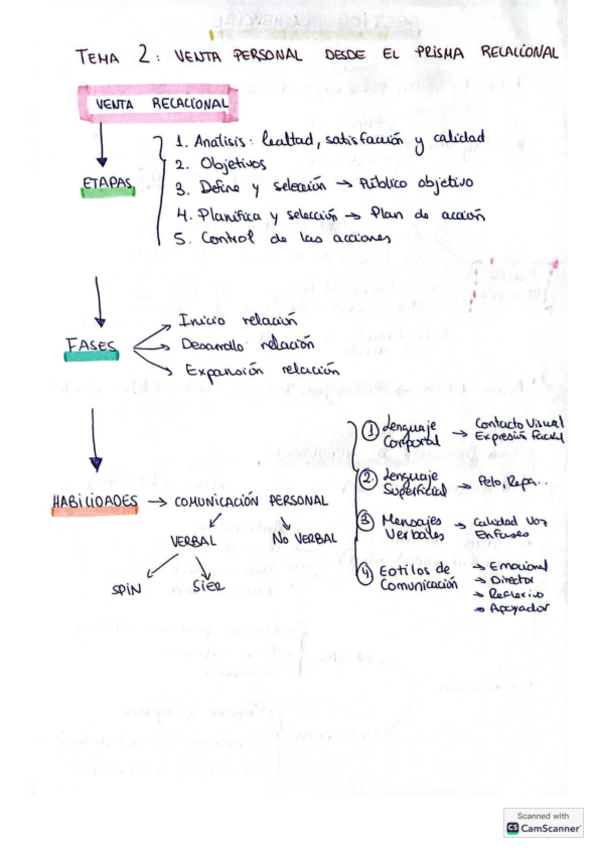 TEMA 2: VENTA PERSONAL DESDE EL PRISMA RELACIONAL
VENTA RELACIONAL
ETAPAS
1. Análisis: lealtad, satisfacción y calidad
2. Objetivos
3. Define y selección → Público objetivo
4. Planifica y selección → Plan de acción
5. Control de las acciones
FASES
Inicio relación
Desarrollo relación
Expansión relación
HABILIDADES → COMUNICACIÓN PERSONAL
VERBAL
NO VERBAL
SPIN
SIER
1 Lenguaje
Corporal
→ Contacto Visual
Expresión Facial
2. Lenguaje
Superficial
→ Pelo, Ropa...
3 Mensajes
Verbales
→ Calidad Voz
Enfases
4 Estilos de
Comunicación
→ Emocional
→ Director
→ Reflexivo
→ Apoyador
Scanned with
CS CamScanner